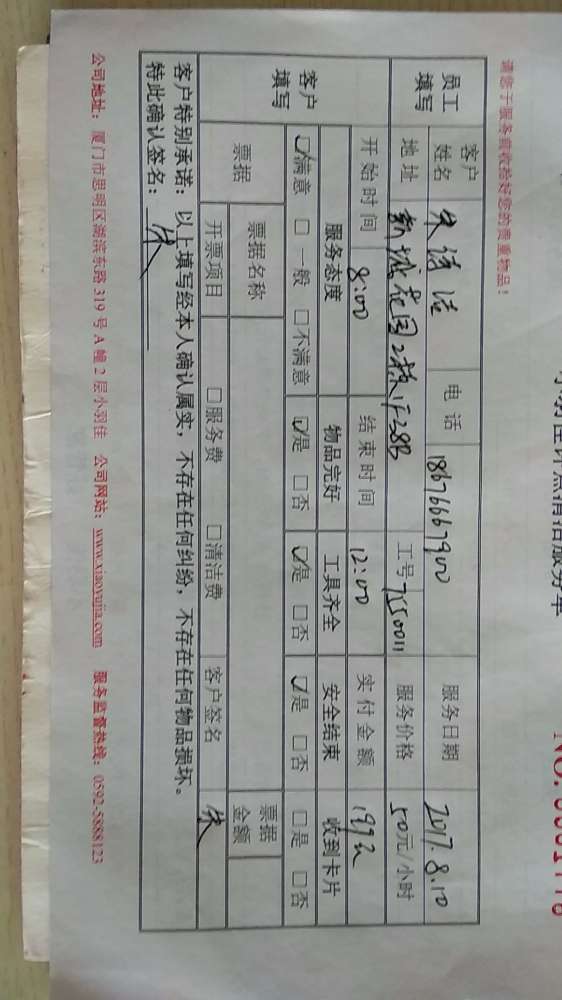 NO.
请您于服务前收拾好您的贵重物品！
员工填写 客户姓名 朱 电话 18676667900 服务日期 2017.8.10
地址 新城花园2栋1F38B 工号 服务价格 50元/小时
客户填写 开始时间 8:00 结束时间 12:00 实付金额
服务态度 物品完好 工具齐全 安全结束 收到卡片
☑满意 □一般 □不满意 ☑是 □否 ☑是 □否 ☑是 □否 □是 □否
票据 票据名称 票据金额
开票项目 □服务费 □清洁费 客户签名 朱
客户特别承诺：以上填写经本人确认属实，不存在任何纠纷，不存在任何物品损坏。
特此确认签名：朱
公司地址：厦门市思明区湖滨东路319号A幢2层小羽佳 公司网站：www.xiaoyujia.com 服务监督热线：0592-5888123